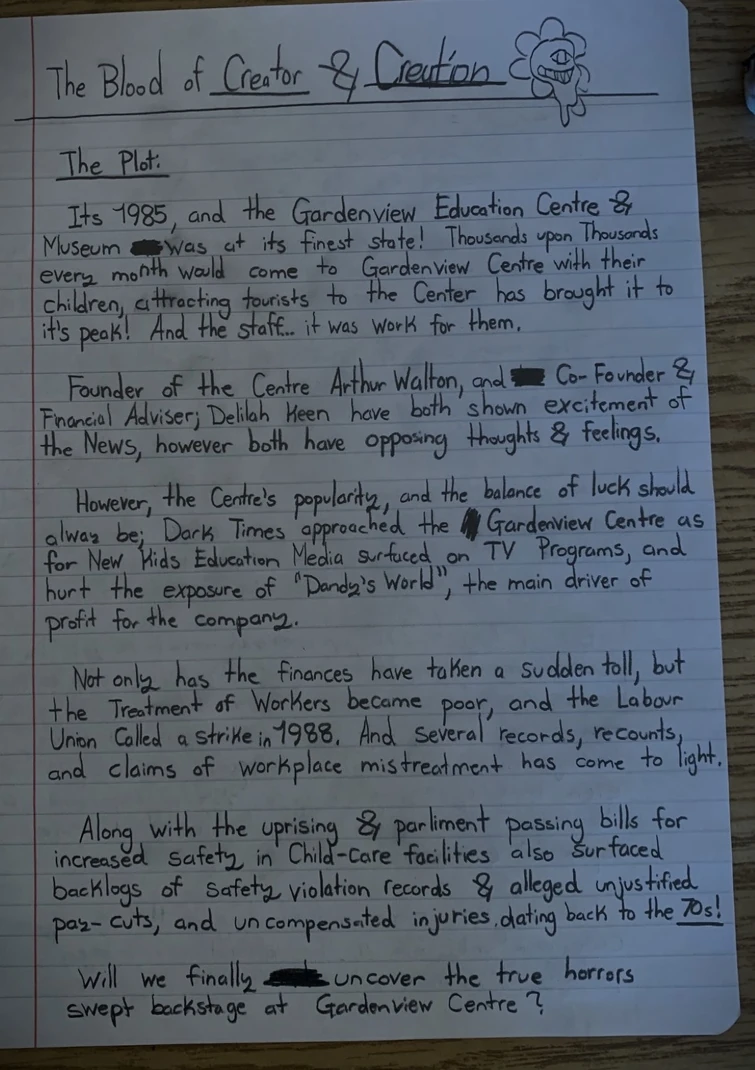 The Blood of Creator & Creation
The Plot:
Its 1985, and the Gardenview Education Centre &
Museum was at its finest state! Thousands upon Thousands
every month would come to Gardenview Centre with their
children, attracting tourists to the Center has brought it to
it's peak! And the staff... it was work for them.
Founder of the Centre Arthur Walton, and Co-Founder &
Financial Adviser; Delilah Keen have both shown excitement of
the News, however both have opposing thoughts & feelings.
However, the Centre's popularity, and the balance of luck should
alway be; Dark Times approached the Gardenview Centre as
for New Kids Education Media surfaced on TV Programs, and
hurt the exposure of "Dandy's World", the main driver of
profit for the company.
Not only has the finances have taken a sudden toll, but
the Treatment of Workers became poor, and the Labour
Union Called a strike in 1988. And several records, recounts,
and claims of workplace mistreatment has come to light.
Along with the uprising & parliment passing bills for
increased safety in Child-Care facilities also surfaced
backlogs of safety violation records & alleged unjustified
pay-cuts, and uncompensated injuries. dating back to the 70s!
Will we finally uncover the true horrors
swept backstage at Gardenview Centre?